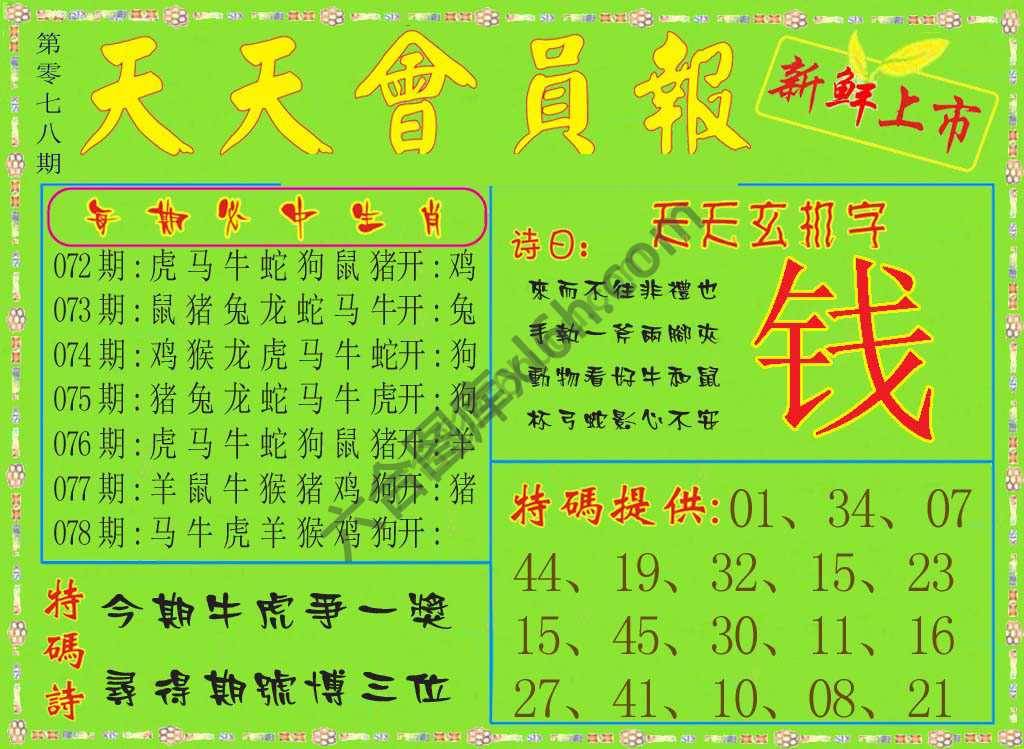 第零七八期
天天會員報
新鲜上市
每期必中生肖
072期:虎马牛蛇狗鼠猪开:鸡
073期:鼠猪兔龙蛇马牛开:兔
074期:鸡猴龙虎马牛蛇开:狗
075期:猪兔龙蛇马牛虎开:狗
076期:虎马牛蛇狗鼠猪开:羊
077期:羊鼠牛猴猪鸡狗开:猪
078期:马牛虎羊猴鸡狗开:
特碼詩
今期牛虎爭一獎
尋得期號博三位
天天玄机字
诗曰:
來而不往非禮也
手執一斧兩腳夾
動物看好牛和鼠
杯弓蛇影心不安
钱
特碼提供:01、34、07
44、19、32、15、23
15、45、30、11、16
27、41、10、08、21
六合图库xl6h.com